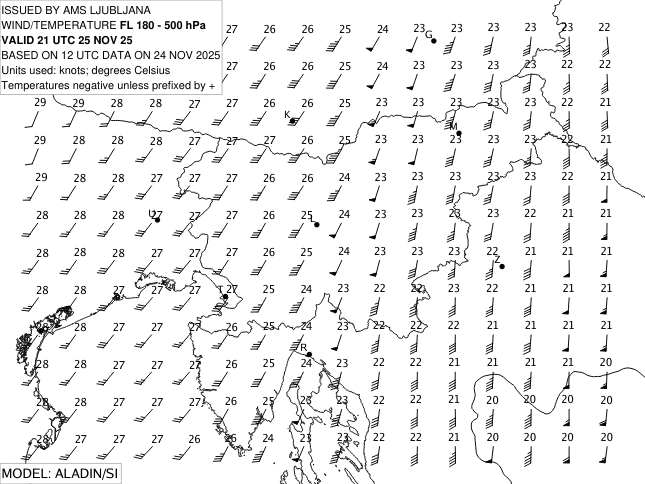 ISSUED BY AMS LJUBLJANA
WIND/TEMPERATURE FL 180 - 500 hPa
VALID 21 UTC 25 NOV 25
BASED ON 12 UTC DATA ON 24 NOV 2025
Units used: knots; degrees Celsius
Temperatures negative unless prefixed by +
27 26 26 25 24 23 23 23 23 23 22
G
27 26 26 25 24 23 23 23 23 22 22
29 29 28 28 27 27 26 26 25 23 23 23 23 23 22 21
K
M
29 28 28 28 27 27 26 26 25 23 23 23 23 23 22 21
29 28 28 27 27 27 26 26 24 23 23 23 23 22 22 21
28 28 28 27 27 26 25 24 23 23 23 22 21 21
U
L
28 28 28 27 27 26 25 24 23 23 22 21 21 21
Z
28 28 27 27 27 27 25 24 23 22 22 23 22 21 21 21
T
28 28 27 27 27 26 25 24 23 22 22 22 21 21 21 21
R
28 28 27 27 27 26 25 24 23 22 22 21 21 21 21 20
28 28 27 27 27 26 25 23 23 22 22 21 20 20 20 20
28 27 27 27 26 26 24 23 23 22 22 21 20 20 20 20
MODEL: ALADIN/SI